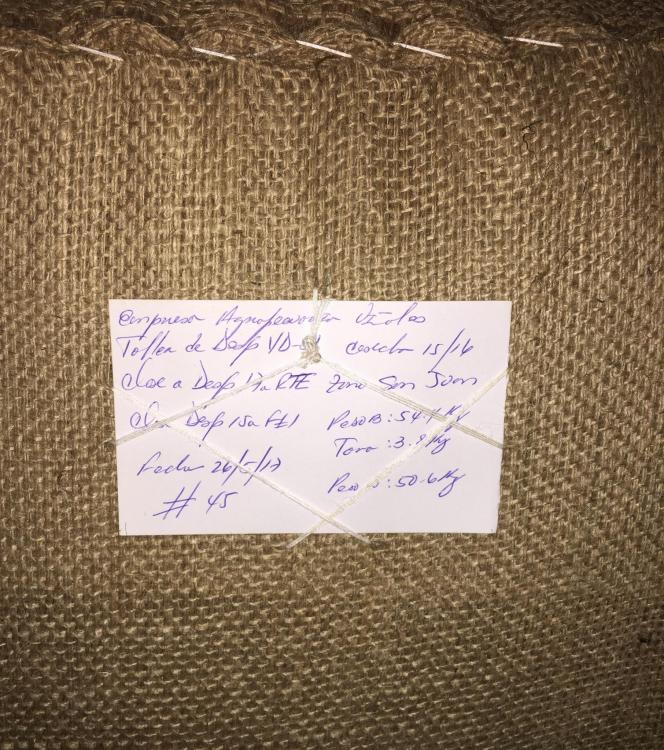 Empresa Agropecuaria Viñales
Taller de Desp VD- Cosecha 15/16
Clase a Desp 17a RTE Zona San Juan
Desp 15a Peso B: 54.
Tara: 3. Kg
Fecha 26/ /17
Peso : 50.6 Kg
# 45